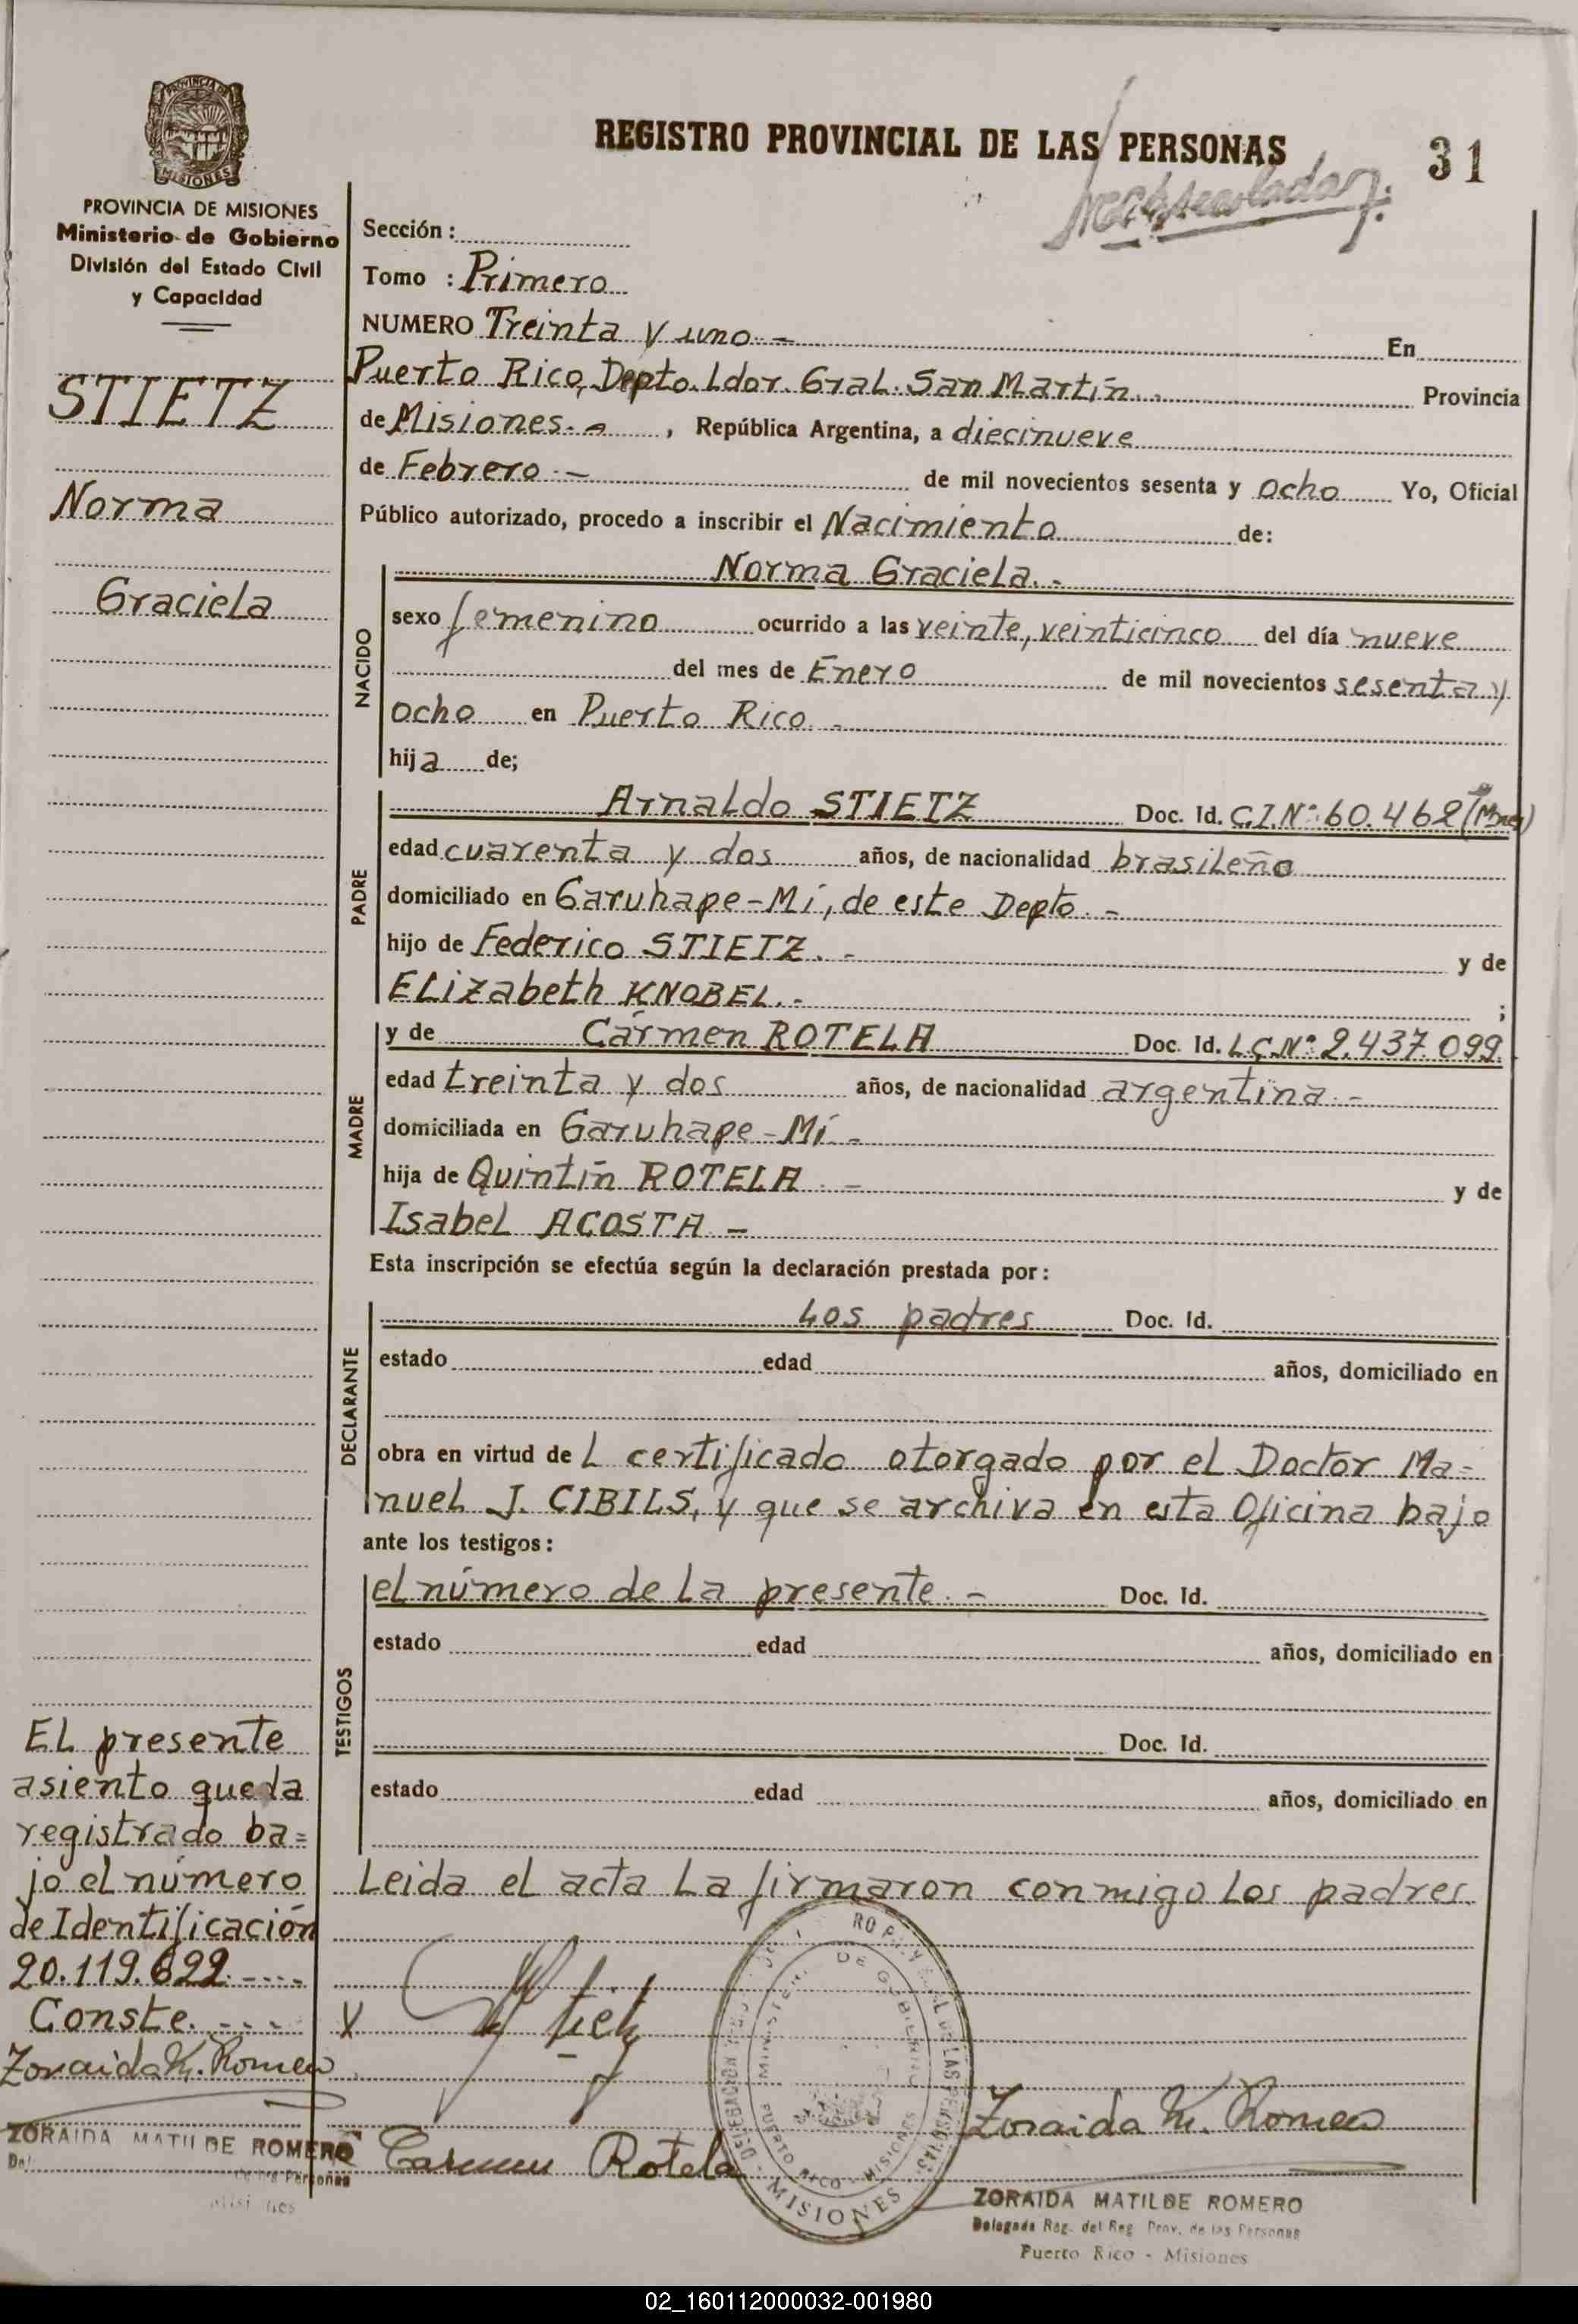 PROVINCIA DE MISIONES
MISIONES
PROVINCIA DE MISIONES
Ministerio de Gobierno
División del Estado Civil
y Capacidad
STIETZ
Norma
Graciela
REGISTRO PROVINCIAL DE LAS PERSONAS
31
Sección :
Tomo : Primero
NUMERO Treinta y uno.- En
Puerto Rico, Depto. Ldor. Gral. San Martín.. Provincia
de Misiones.- , República Argentina, a diecinueve
de Febrero.- de mil novecientos sesenta y ocho Yo, Oficial
Público autorizado, procedo a inscribir el Nacimiento de:
NACIDO
Norma Graciela.-
sexo femenino ocurrido a las veinte, veinticinco del día nueve
del mes de Enero de mil novecientos sesenta y
ocho en Puerto Rico.-
hija de;
PADRE
Arnaldo STIETZ Doc. Id. C.I.Nº 60.462 (Mnes)
edad cuarenta y dos años, de nacionalidad brasileño
domiciliado en Garuhape-Mí, de este Depto.-
hijo de Federico STIETZ.- y de
Elizabeth KNOBEL.- ;
MADRE
y de Cármen ROTELA Doc. Id. L.C.Nº 2.437.099.
edad treinta y dos años, de nacionalidad argentina.-
domiciliada en Garuhape-Mí-
hija de Quintín ROTELA.- y de
Isabel ACOSTA-
Esta inscripción se efectúa según la declaración prestada por:
DECLARANTE
Los padres Doc. Id.
estado edad años, domiciliado en
obra en virtud de l certificado otorgado por el Doctor Ma=
nuel J. CIBILS, y que se archiva en esta Oficina bajo
ante los testigos:
TESTIGOS
el número de la presente.- Doc. Id.
estado edad años, domiciliado en
Doc. Id.
estado edad años, domiciliado en
Leida el acta la firmaron conmigo los padres.
El presente
asiento queda
registrado ba=
jo el número
de Identificación
20.119.622.----
Conste.---
Zoraida M. Romero
ZORAIDA MATILDE ROMERO
X
Carmen Rotela
MINISTERIO DE GOBIERNO
PUERTO RICO - MISIONES
MISIONES
Zoraida M. Romero
ZORAIDA MATILDE ROMERO
Delegada Reg. del Reg. Prov. de las Personas
Puerto Rico - Misiones
02_160112000032-001980